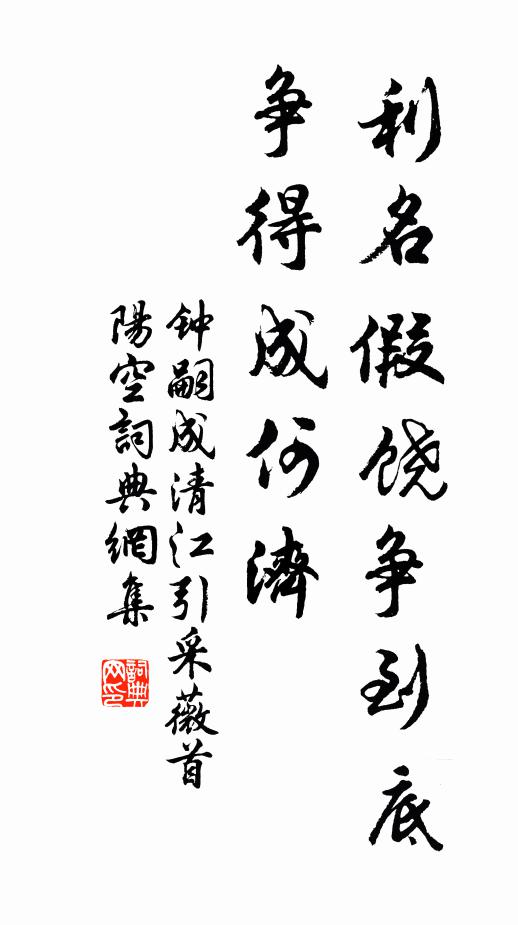 利名假饶争到底
争得成何濟
钟嗣成清江引采薇首
陽空詞典網集
詞典网印